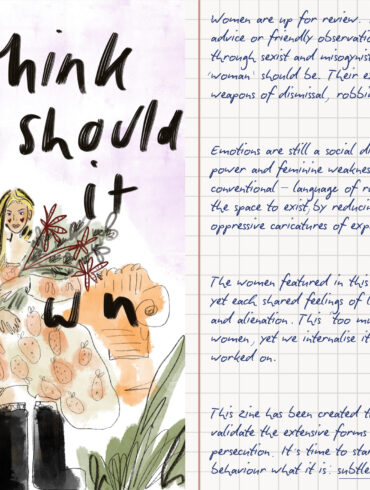 hink
should
it
wn
Women are up for review.
advice or friendly observatio
through sexist and misogynist
'woman' should be. Their e
weapons of dismissal, robbin
Emotions are still a social di
power and feminine weakness
conventional – language of r
the space to exist, by reducin
oppressive caricatures of exp
The women featured in this
yet each shared feelings of l
and alienation. This 'too mu
women, yet we internalise it
worked on.
This zine has been created t
validate the extensive forms
persecution. It's time to star
behaviour what it is: subtle